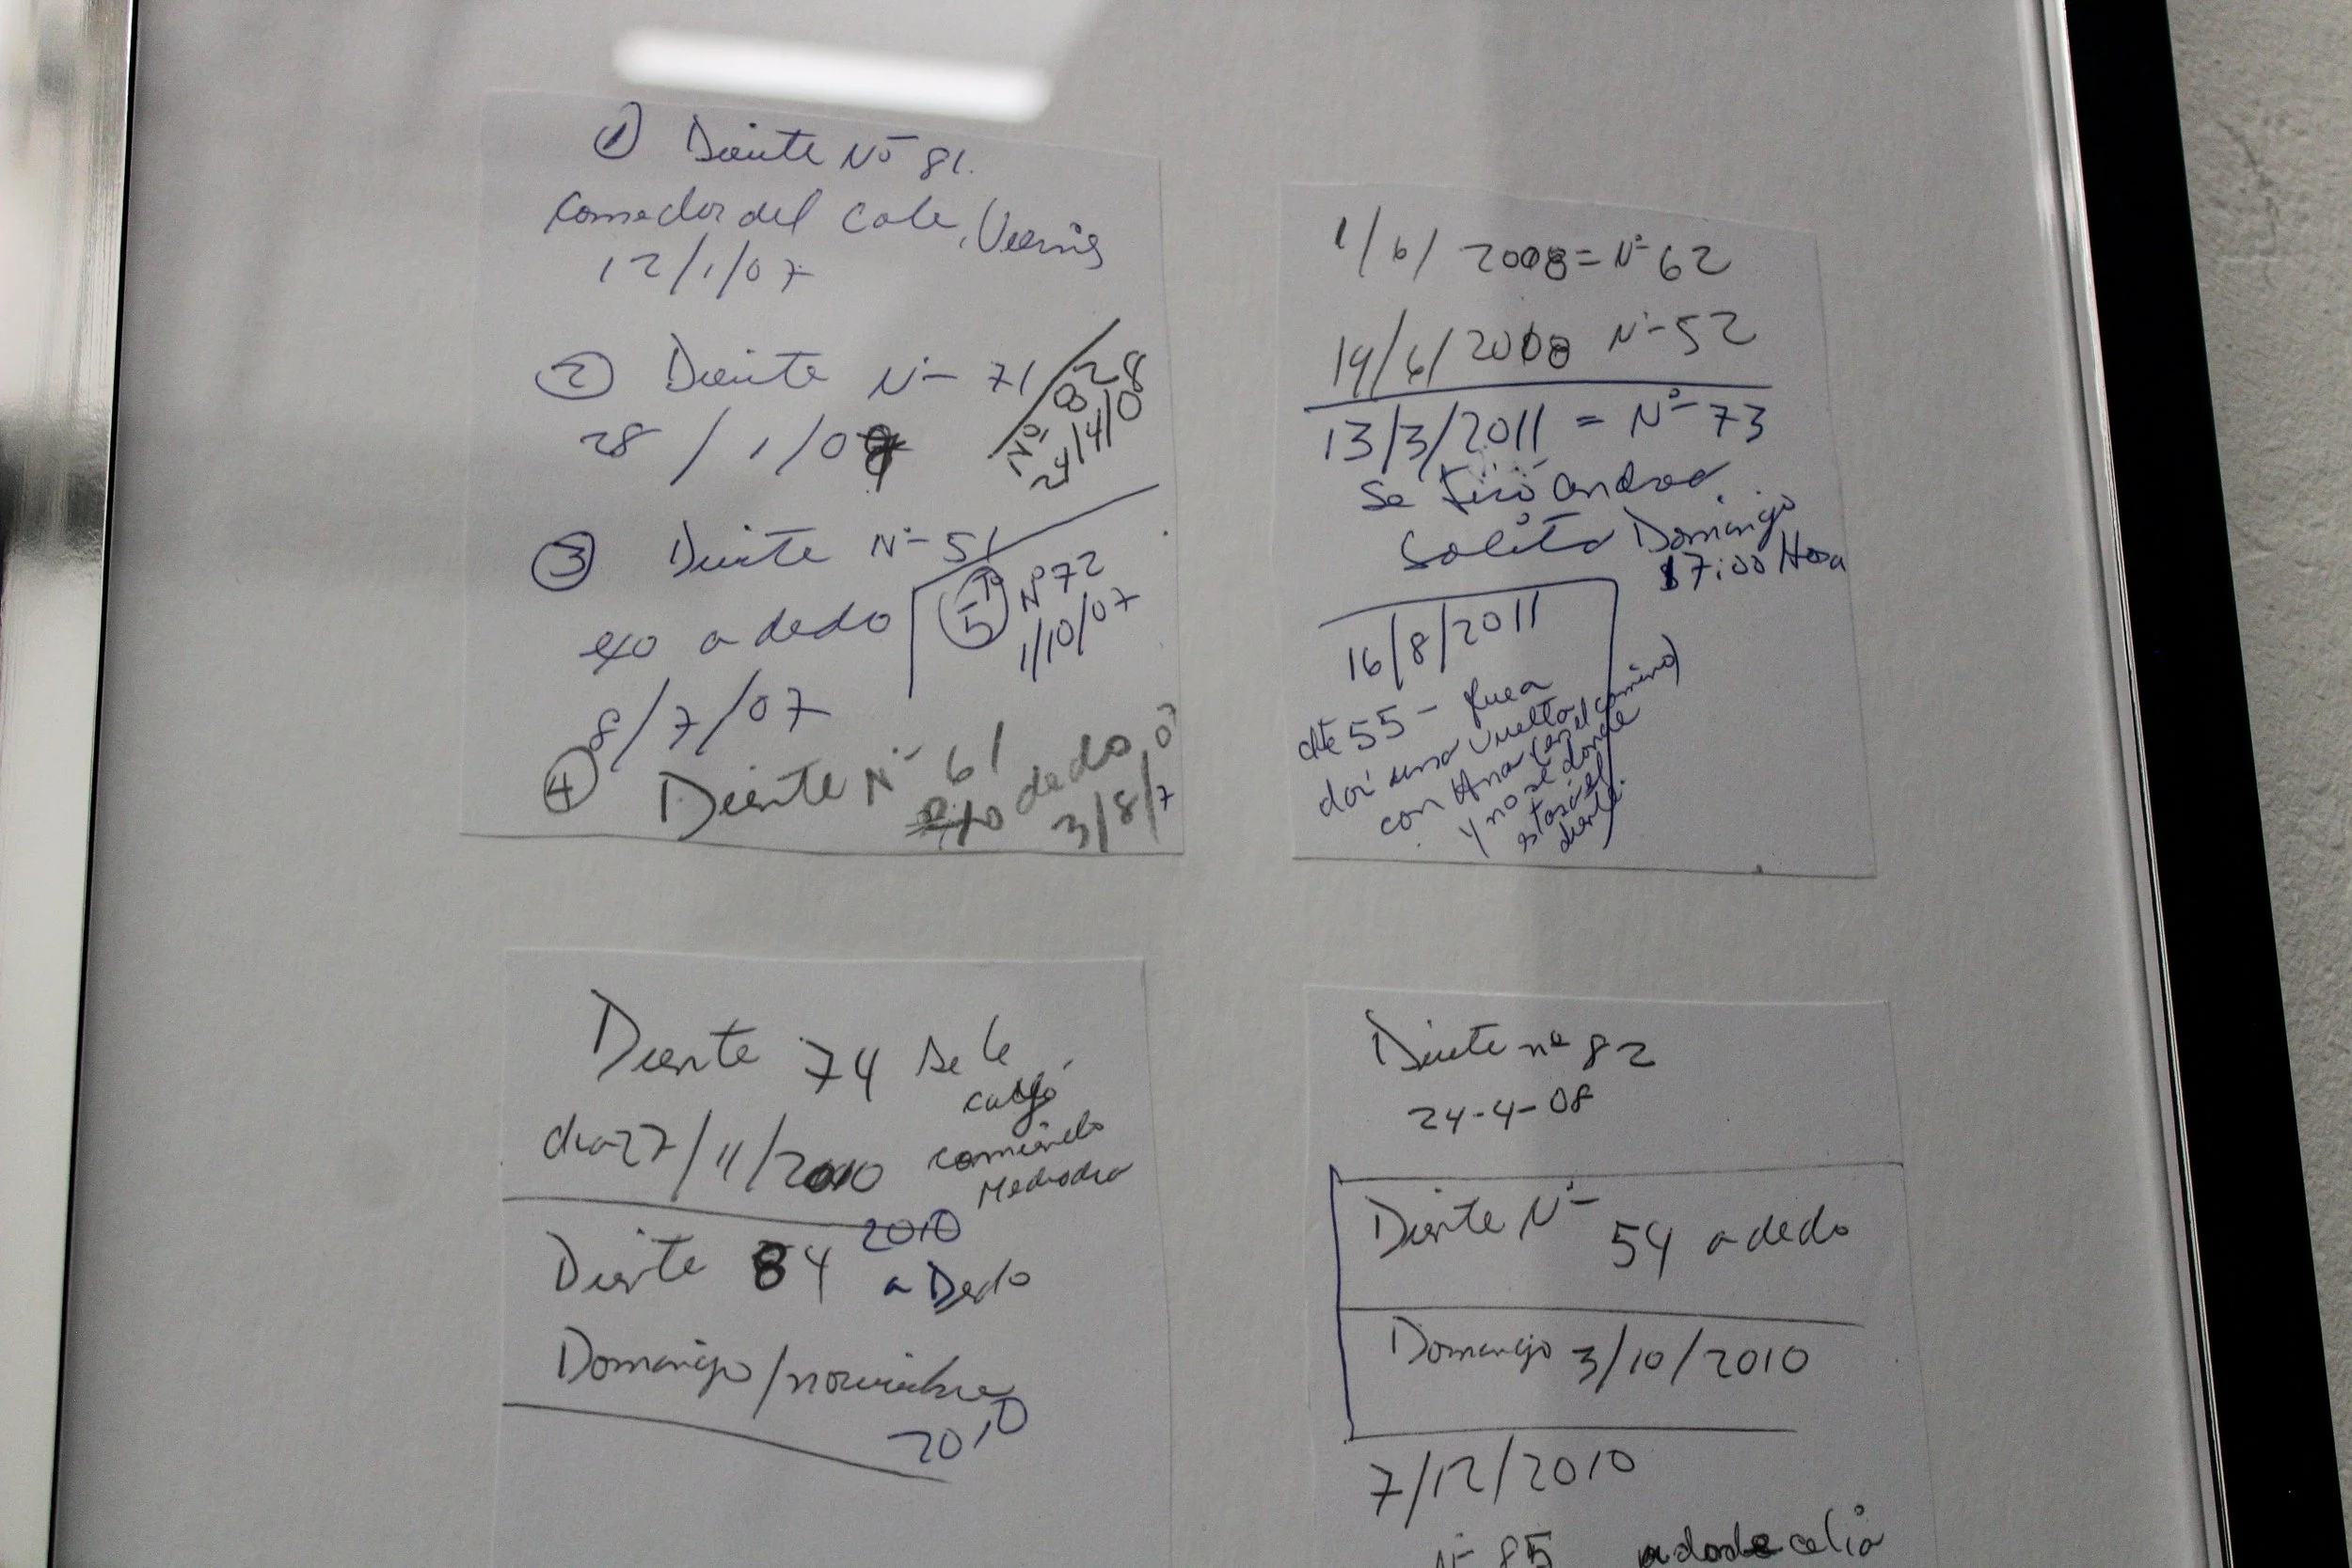 ① Diente Nº 81.
comedor del cole, Viernes
12/1/07
② Diente Nº 71
28/1/07
Nº 82
24/4/08
③ Diente Nº 51
exo a dedo
8/7/07
5º Nº 72
1/10/07
④ Diente Nº 61
exo dedo
3/8/07
1/6/2008 = Nº 62
19/6/2008 Nº 52
13/3/2011 = Nº 73
Se tiró
solita Domingo
7:00 Hora
16/8/2011
dte 55 - fue a
dar una vuelta
con Ana (en el camino)
y no sé donde
está el
diente.
Diente 74 se le
cayó
dia 27/11/2010 comiendo
Mediodia
Diente 84 2010
a Dedo
Domingo/noviembre
2010
Diente nº 82
24-4-08
Diente Nº 54 a dedo
Domingo 3/10/2010
7/12/2010
Nº 85